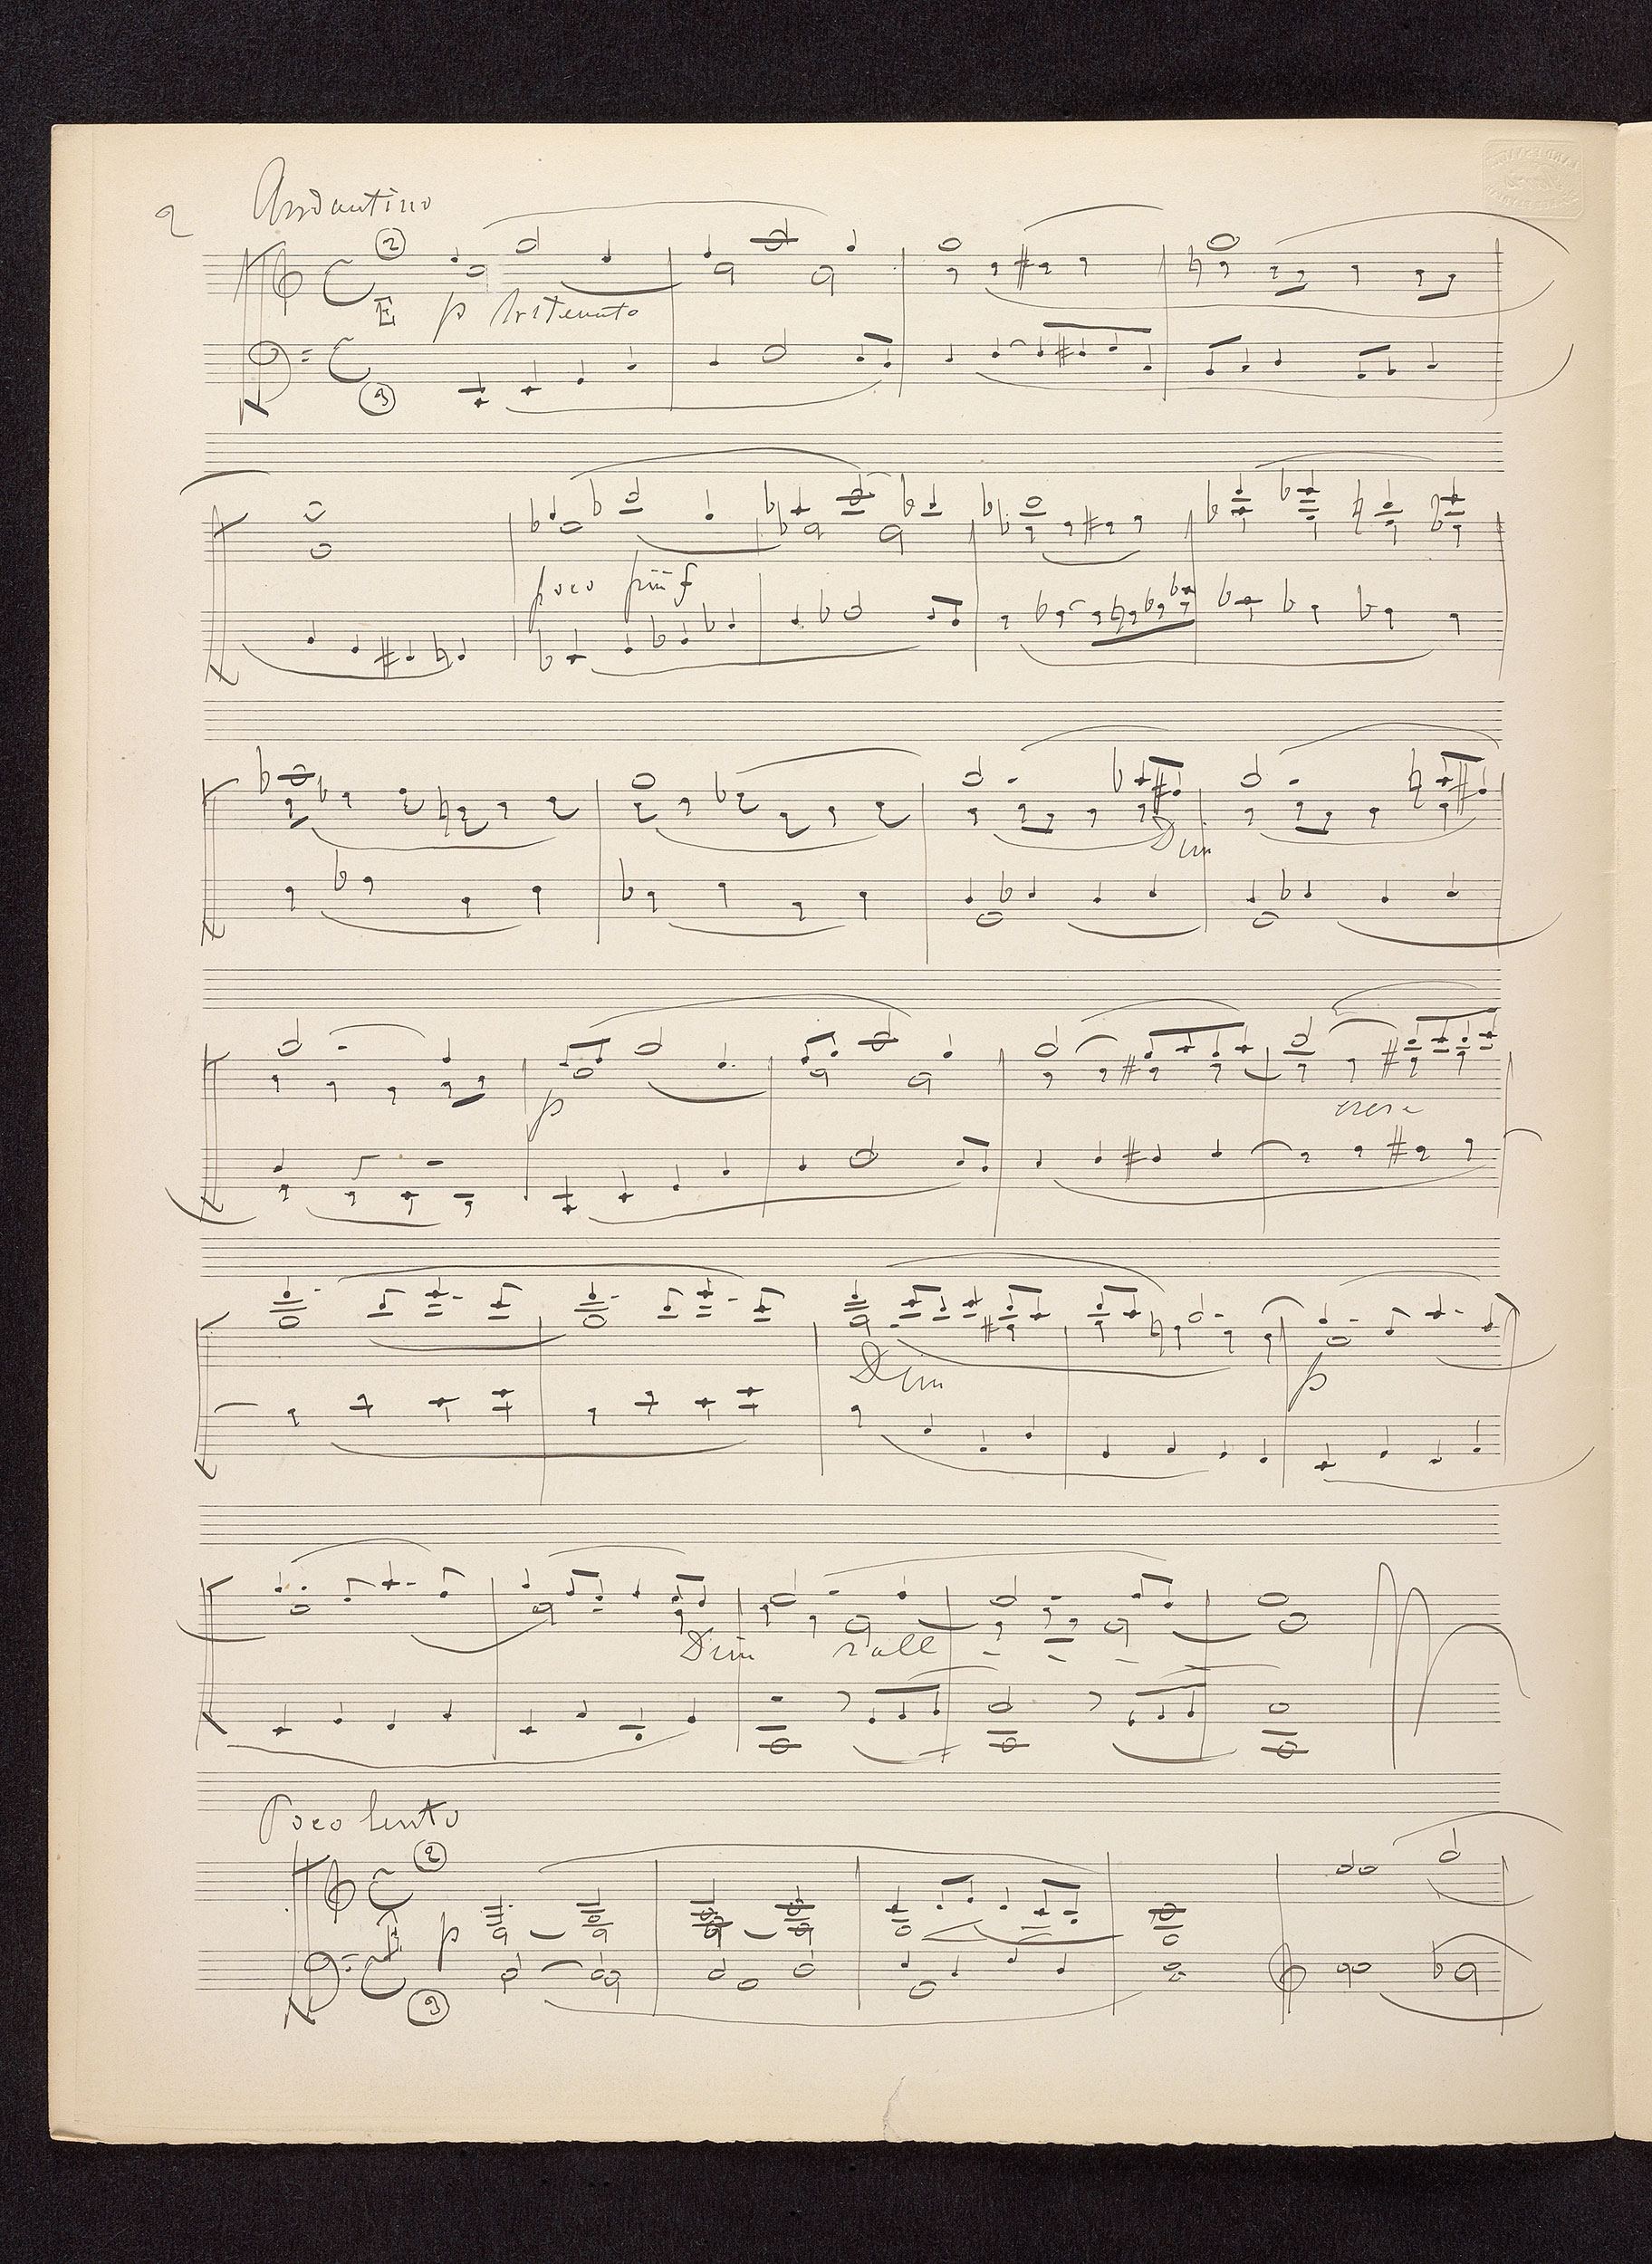 2 Andantino
②
E p sostenuto
③
poco più f
Dim
p cresc
Dim p
Dim rall
Poco lento
②
E p
③